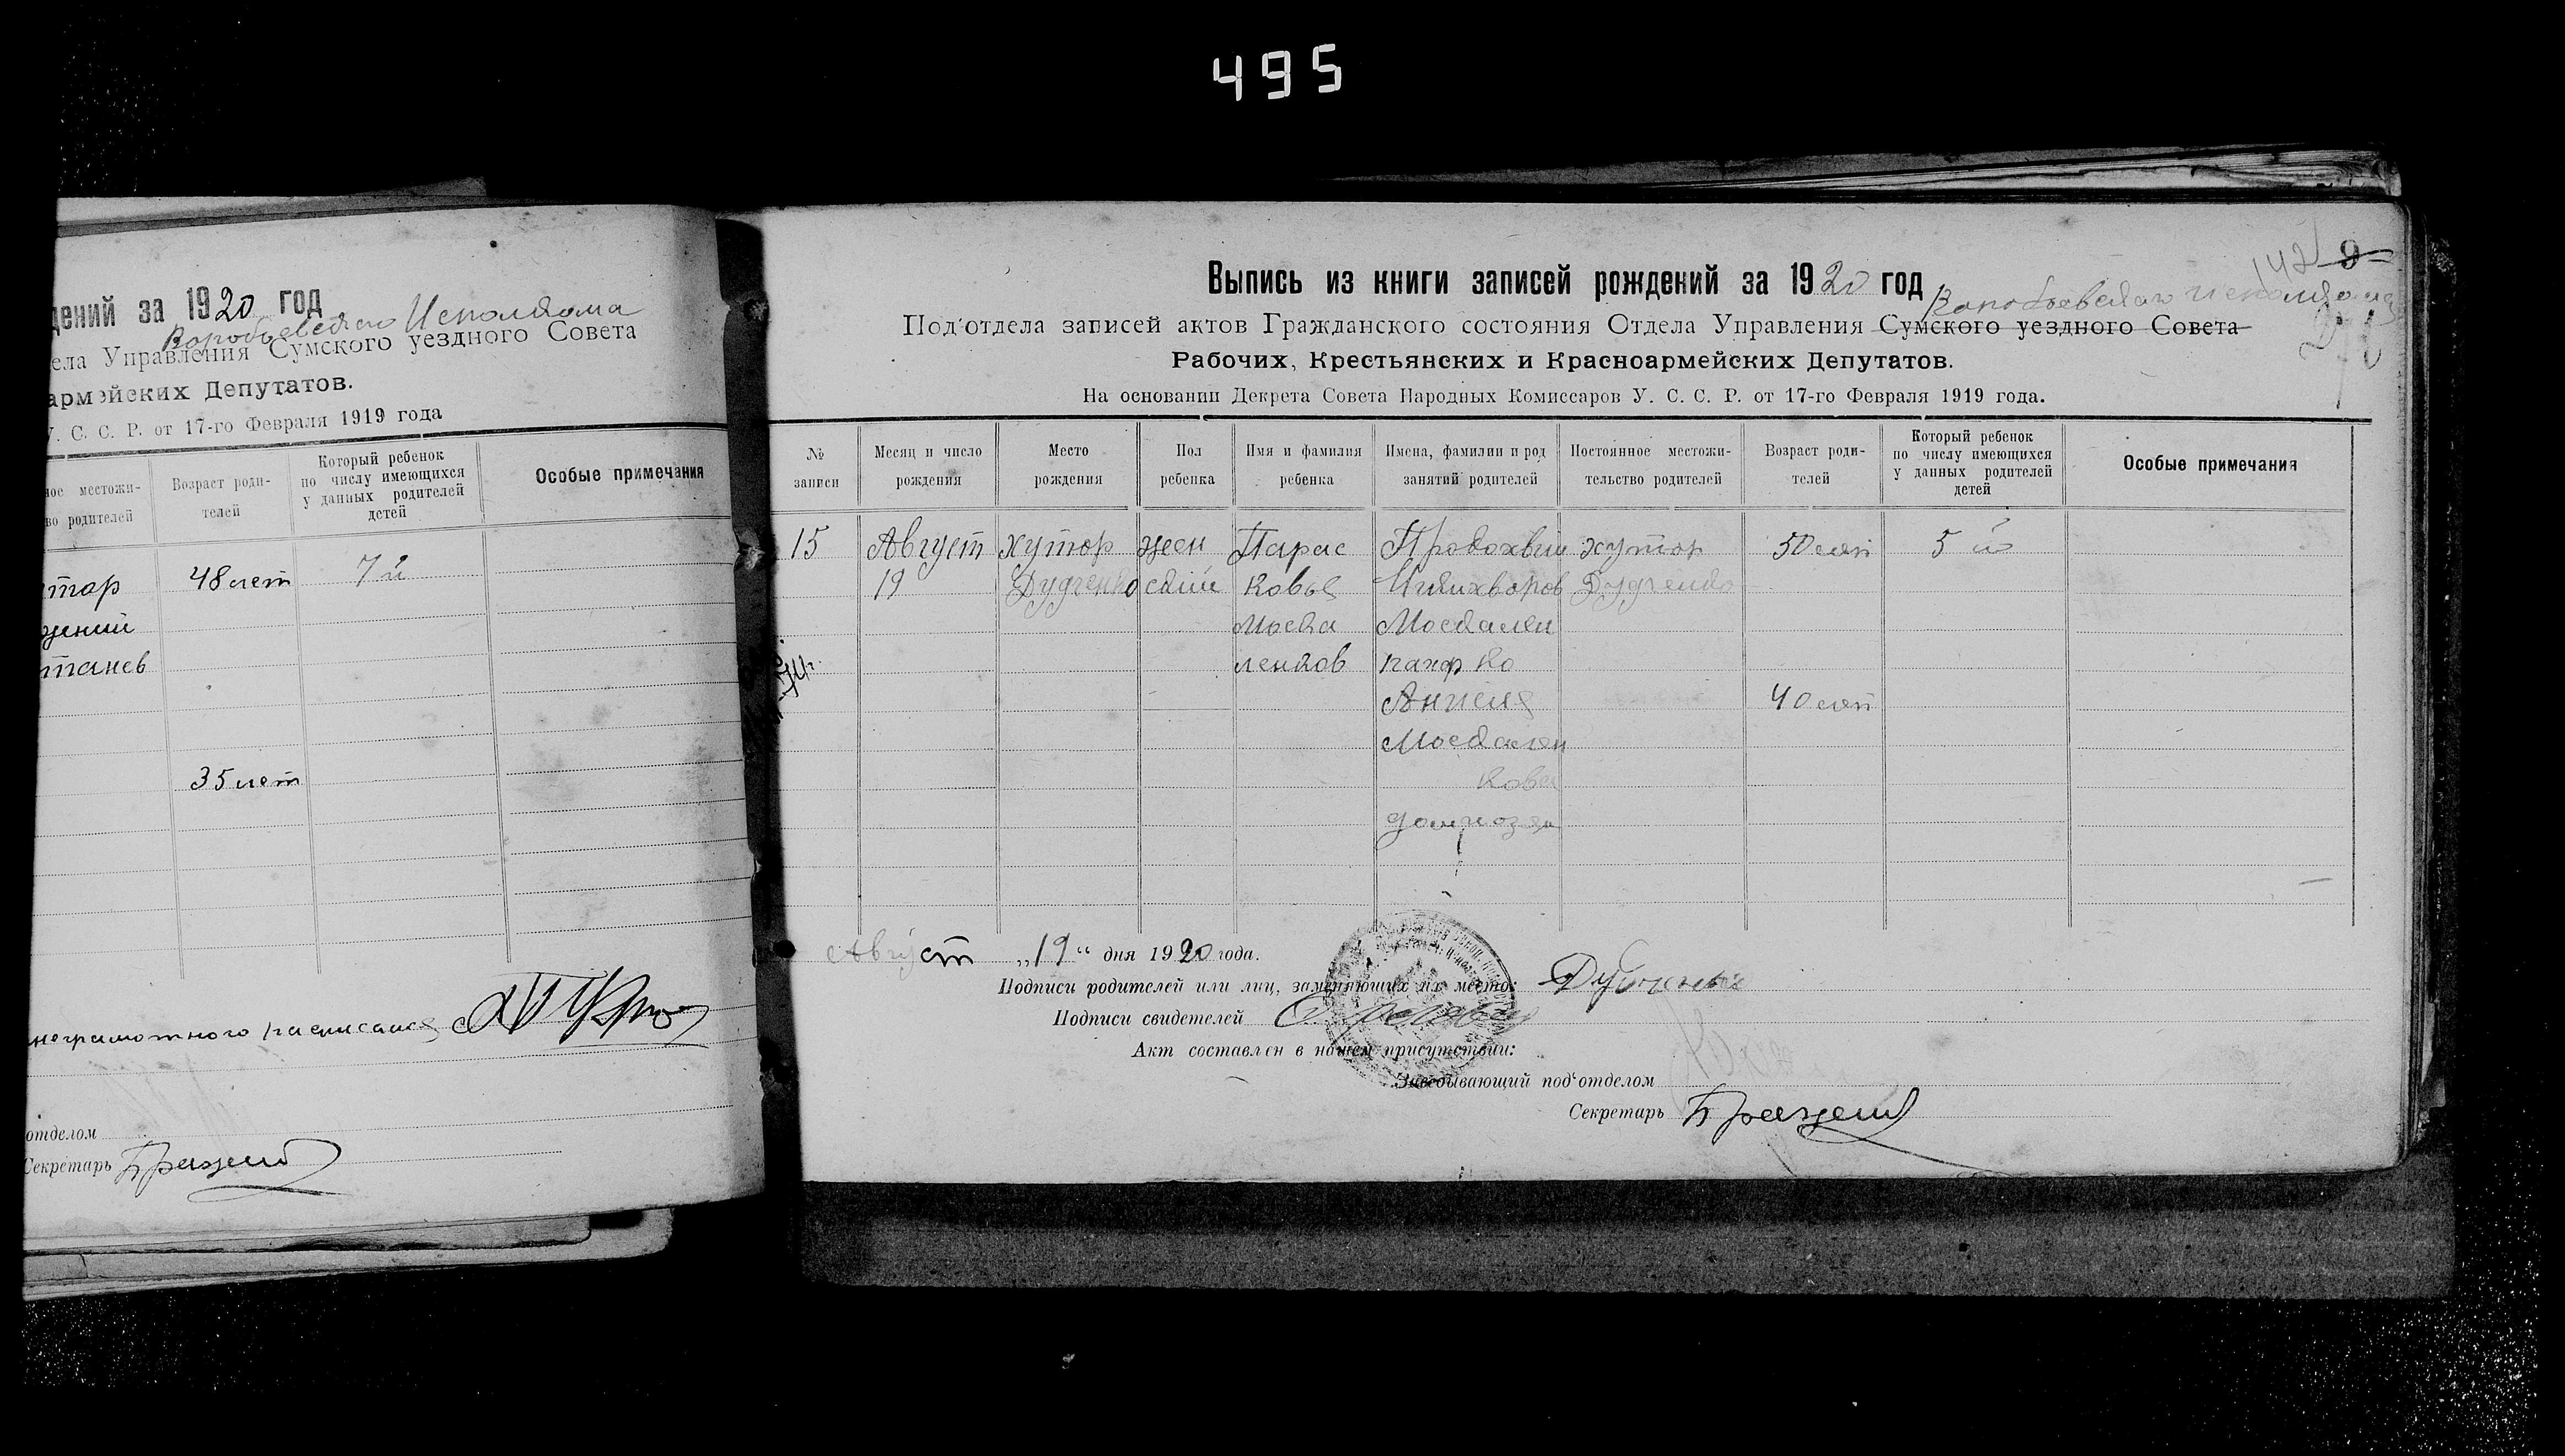 495
дений за 1920 год
Воробьевского Исполкома
ела Управления Сумского уездного Совета
армейских Депутатов.
У. С. С. Р. от 17-го Февраля 1919 года
ное местожи-
во родителей
Возраст роди-
телей
Который ребенок
по числу имеющихся
у данных родителей
детей
Особые примечания
48 лет
7 й
35 лет
неграмотного расписался
отделом
Секретарь
142
9
Выпись из книги записей рождений за 1920 год
Воробьевского исполкома
Под'отдела записей актов Гражданского состояния Отдела Управления Сумского уездного Совета
Рабочих, Крестьянских и Красноармейских Депутатов.
На основании Декрета Совета Народных Комиссаров У. С. С. Р. от 17-го Февраля 1919 года.
№
записи
Месяц и число
рождения
Место
рождения
Пол
ребенка
Имя и фамилия
ребенка
Имена, фамилии и род
занятий родителей
Постоянное местожи-
тельство родителей
Возраст роди-
телей
Который ребенок
по числу имеющихся
у данных родителей
детей
Особые примечания
15
Август
19
хутор
Дудченко
жен
ский
Парас
ковья
Моска
ленков
Москален
ко
Москален
кова
хутор
Дудченко
50 лет
40 лет
5 й
Август „19“ дня 1920 года.
Подписи родителей или лиц, заменяющих их место:
Подписи свидетелей
Акт составлен в нашем присутствии:
Заведывающий под'отделом
Секретарь